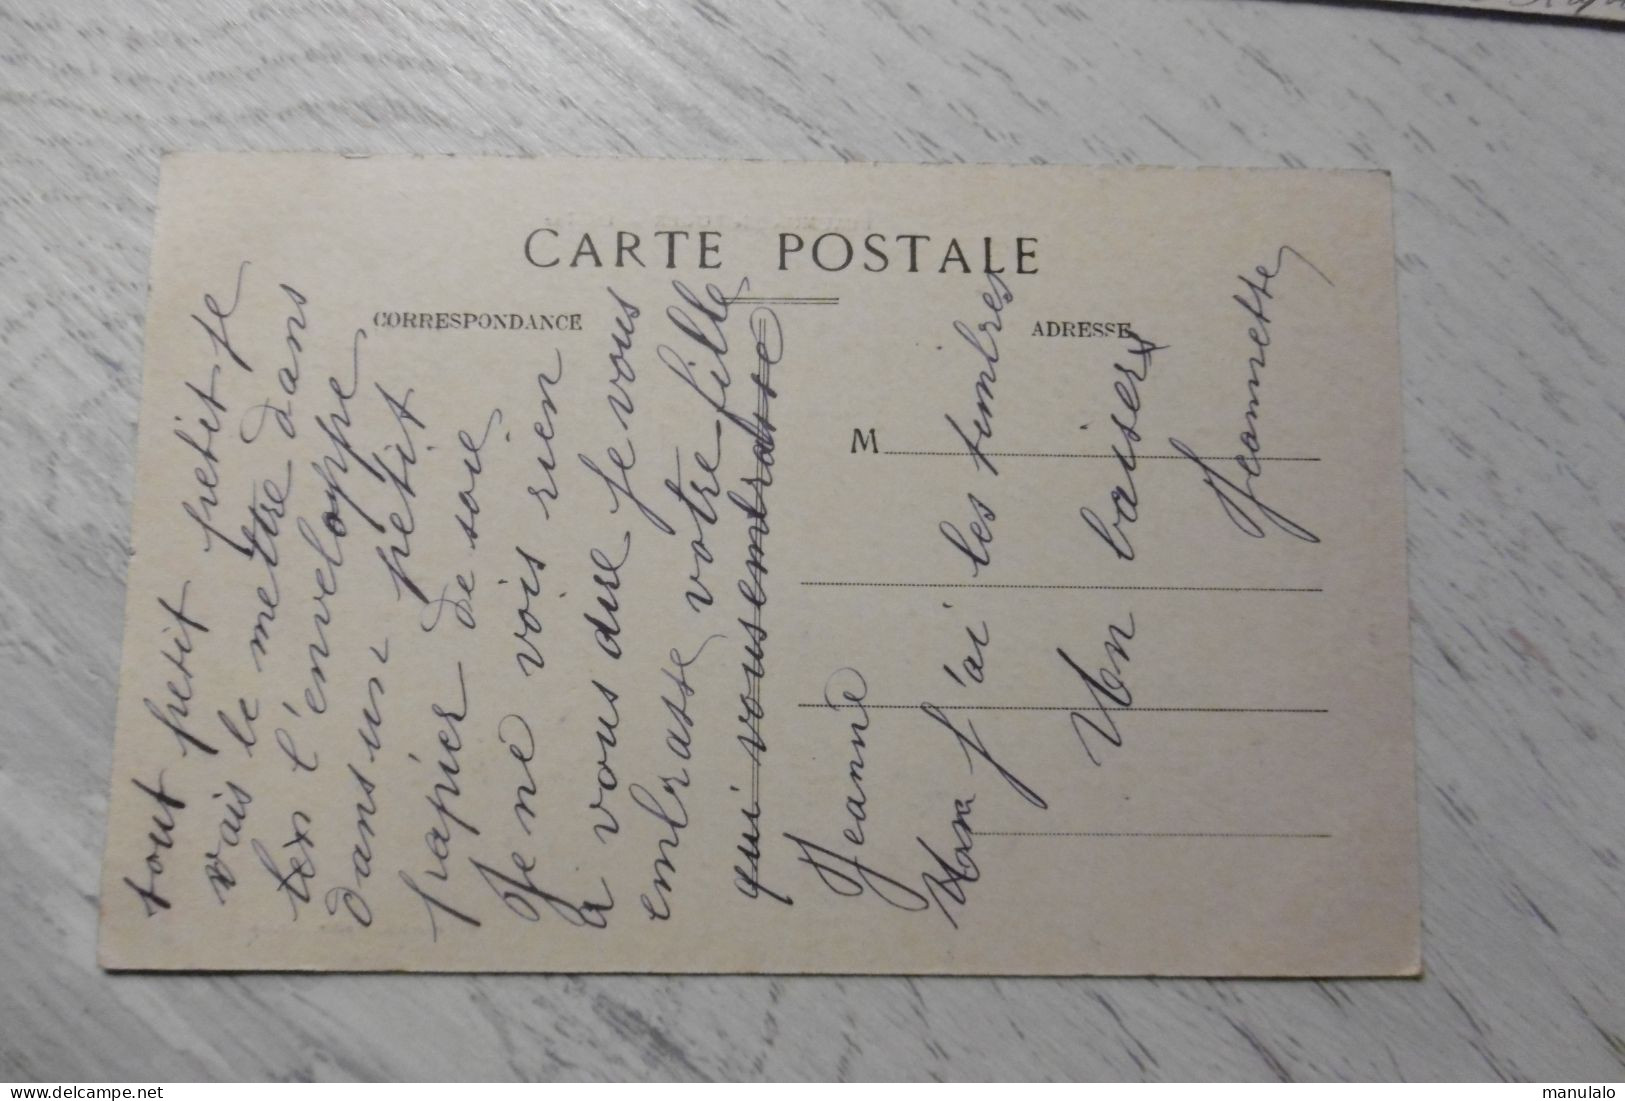 CARTE POSTALE
CORRESPONDANCE
ADRESSE
M
tout petit petit je
vais le mettre dans
l'enveloppe
dans un petit
papier de soie
Je ne vois rien
a vous dire Je vous
embrasse votre fille
qui vous embrasse
Jeanne
J'ai les timbres
Un baiser
Jeannette
delcampe.net
manulalo